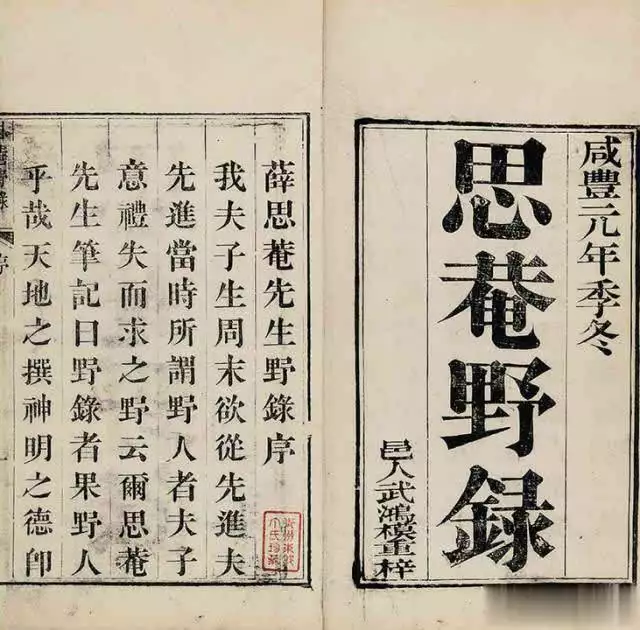 咸豐元年季冬
思菴野録
邑人武鴻樓重梓
薛思菴先生野錄序
我夫子生周末欲從先進夫
先進當時所謂野人者夫子
意禮失而求之野云爾思菴
先生筆記曰野錄者果野人
乎哉天地之撰神明之德卽
序